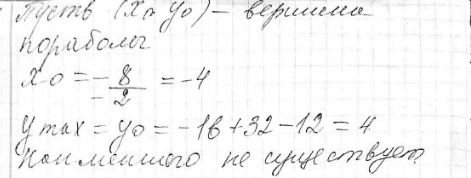 Пусть (x0 y0) - вершина
параболы
x0 = - 8/-2 = -4
y max = y0 = -16 + 32 - 12 = 4
Наименьшего не существует